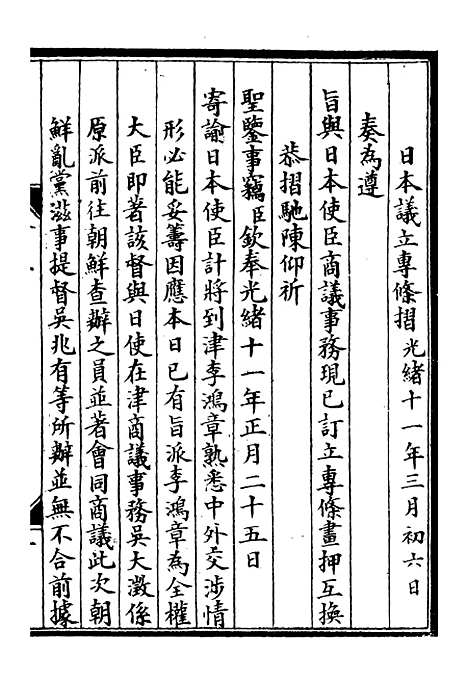 日本議立專條摺光緒十一年三月初六日
奏為遵
旨與日本使臣商議事務現已訂立專條畫押互換
恭摺馳陳仰祈
聖鑒事竊臣欽奉光緒十一年正月二十五日
寄諭日本使臣計將到津李鴻章熟悉中外交涉情
形必能妥籌因應本日已有旨派李鴻章為全權
大臣即著該督與日使在津商議事務吳大澂係
原派前往朝鮮查辦之員並著會同商議此次朝
鮮亂黨滋事提督吳兆有等所辦並無不合前據